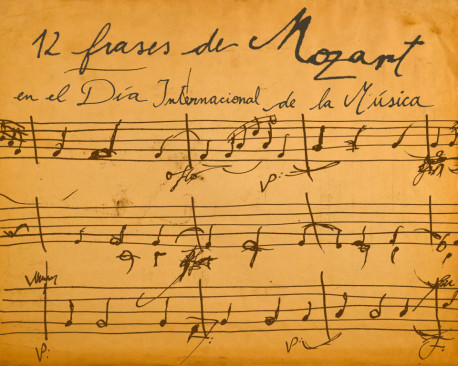 12 frases de Mozart
en el Día Internacional de la Música